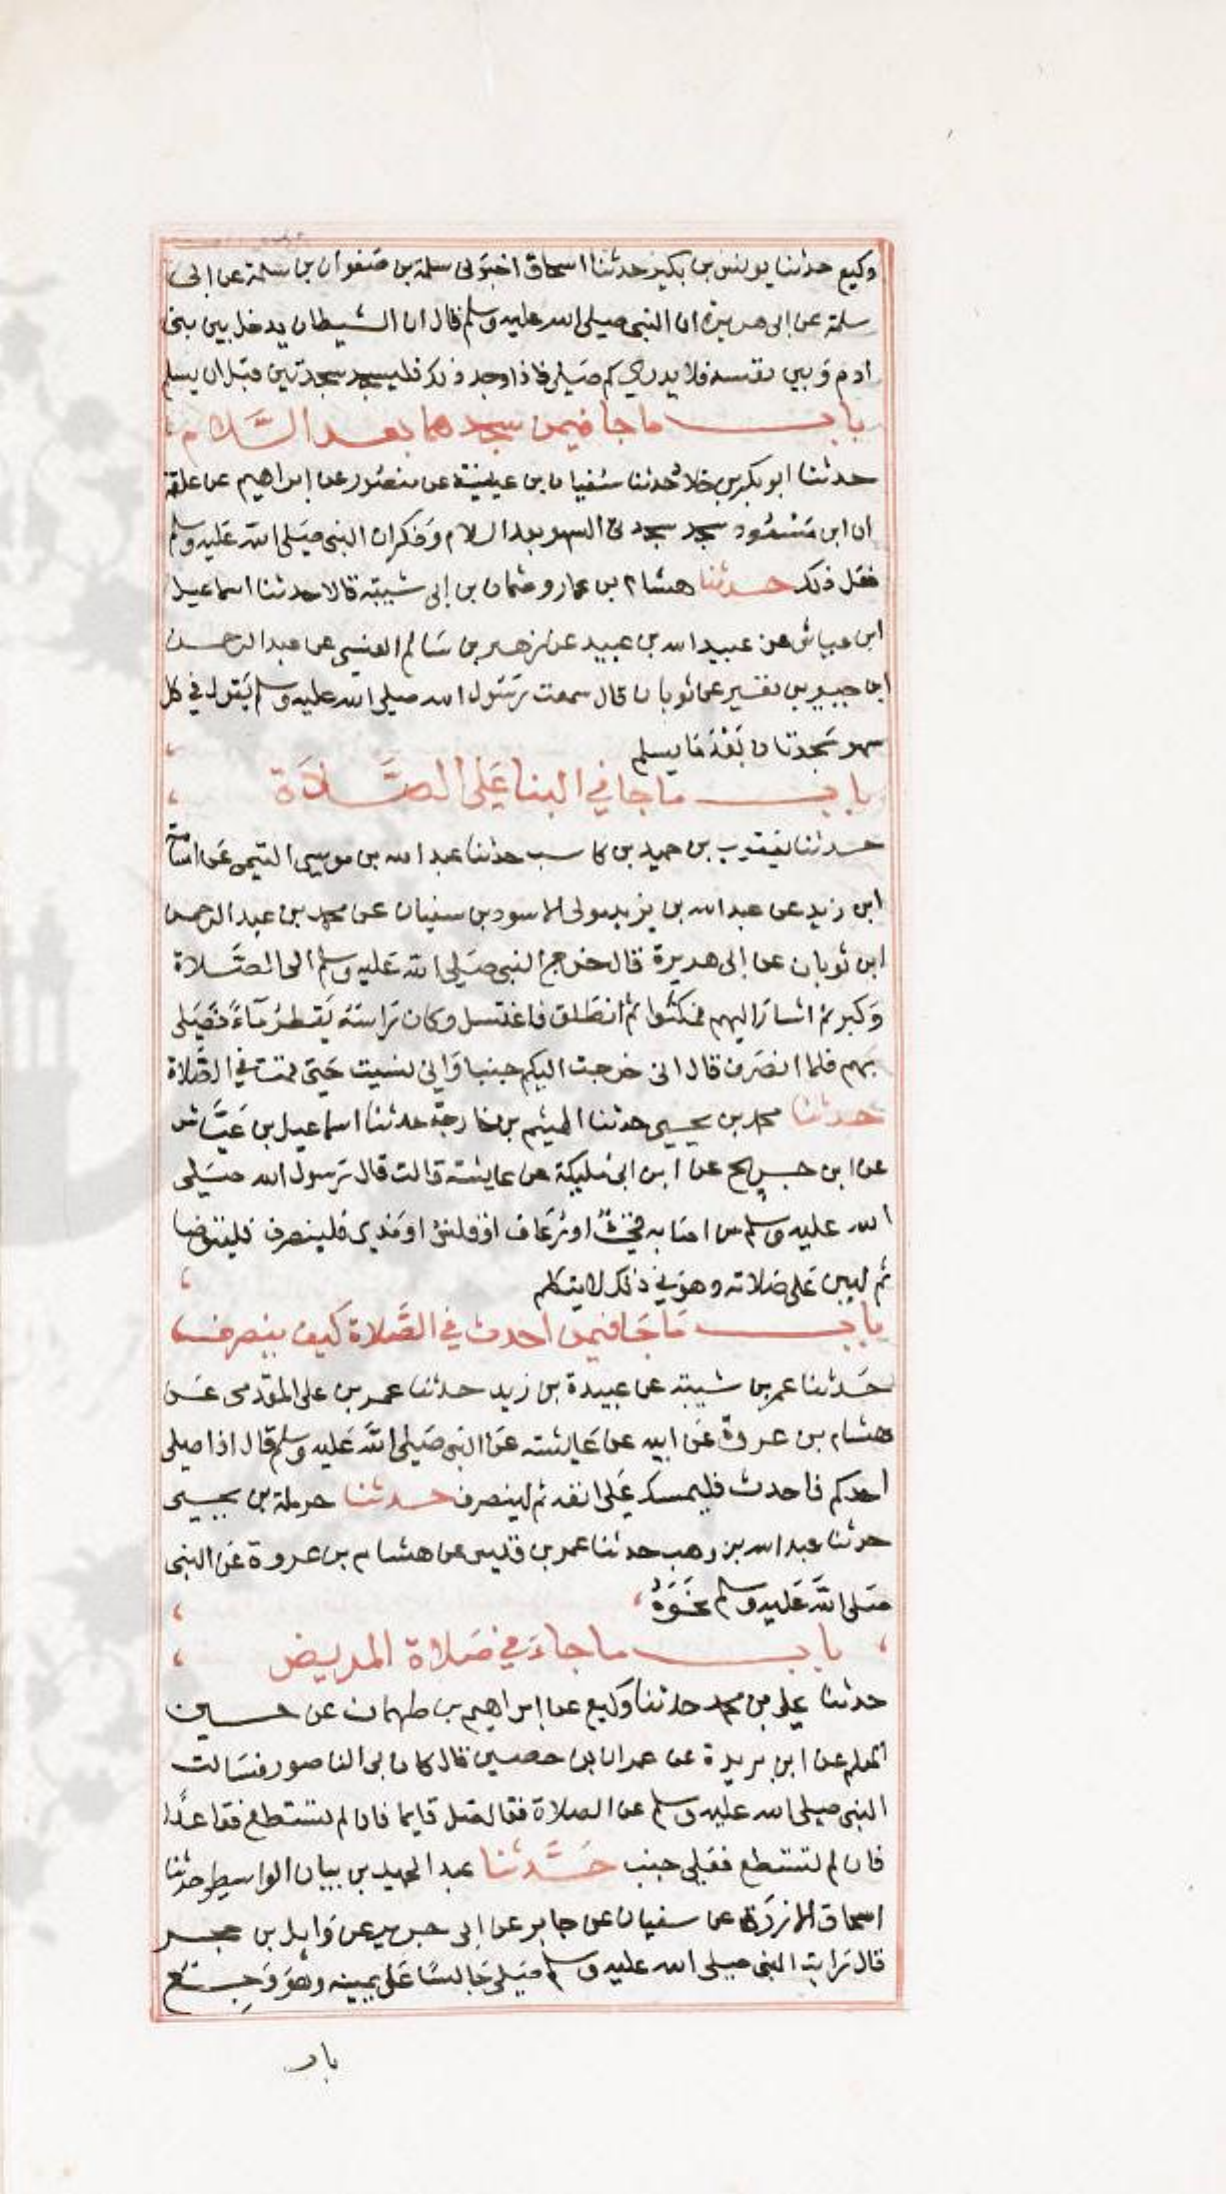 وكيع حدثنا يونس بن بكير حدثنا اسحاق اخبرني سلمة بن صفوان بن سلمة عن ابي
سلمة عن ابي هريرة ان النبي صلى الله عليه وسلم قال ان الشيطان يدخل بين بني
ادم وبين نفسه فلا يدري كم صلى فاذا وجد ذلك فليسجد سجدتين قبل ان يسلم
باب ما جا فيمن سجدهما بعد السلام
حدثنا ابو بكر بن خلاد حدثنا سفيان بن عيينة عن منصور عن ابراهيم عن علقمة
ان ابن مسعود سجد سجدتي السهو بعد السلام وذكر ان النبي صلى الله عليه وسلم
فعل ذلك حدثنا هشام بن عمار وعثمان بن ابي شيبة قالا حدثنا اسماعيل
ابن عياش عن عبيد الله بن عبيد عن زهير بن سالم العنسي عن عبد الرحمن
ابن جبير بن نفير عن ثوبان قال سمعت رسول الله صلى الله عليه وسلم يقول في كل
سهو سجدتان بعد ما يسلم
باب ما جا في البنا على الصلاة
حدثنا يعقوب بن حميد بن كاسب حدثنا عبد الله بن موسى التيمي عن اسامة
ابن زيد عن عبد الله بن يزيد مولى الاسود بن سفيان عن محمد بن عبد الرحمن
ابن ثوبان عن ابي هريرة قال خرج النبي صلى الله عليه وسلم الى الصلاة
وكبر ثم اشار اليهم فمكثوا ثم انطلق فاغتسل وكان راسه يقطر ماء فصلى
بهم فلما انصرف قال اني خرجت اليكم جنبا واني نسيت حتى قمت في الصلاة
حدثنا محمد بن يحيى حدثنا الهيثم بن خارجة حدثنا اسماعيل بن عياش
عن ابن جريج عن ابن ابي مليكة عن عايشة قالت قال رسول الله صلى
الله عليه وسلم من اصابه قيء او رعاف او قلس او مذي فلينصرف فليتوضا
ثم ليبن على صلاته وهو في ذلك لا يتكلم
باب ما جا فيمن احدث في الصلاة كيف ينصرف
حدثنا عمر بن شيبة عن عبيدة بن زيد حدثنا عمر بن علي المقدمي عن
هشام بن عروة عن ابيه عن عايشة عن النبي صلى الله عليه وسلم قال اذا صلى
احدكم فاحدث فليمسك على انفه ثم لينصرف حدثنا حرملة بن يحيى
حدثنا عبد الله بن وهب حدثنا عمر بن قيس عن هشام بن عروة عن النبي
صلى الله عليه وسلم نحوه
باب ما جاء في صلاة المريض
حدثنا علي بن محمد حدثنا وكيع عن ابراهيم بن طهمان عن حسين
المعلم عن ابن بريدة عن عمران بن حصين قال كان بي الناصور فسالت
النبي صلى الله عليه وسلم عن الصلاة فقال صل قايما فان لم تستطع فقاعدا
فان لم تستطع فعلى جنب حدثنا عبد الحميد بن بيان الواسطي حدثنا
اسحاق الازرق عن سفيان عن جابر عن ابي حريز عن وايل بن حجر
قال رايت النبي صلى الله عليه وسلم صلى جالسا على يمينه وهو وجع
باب